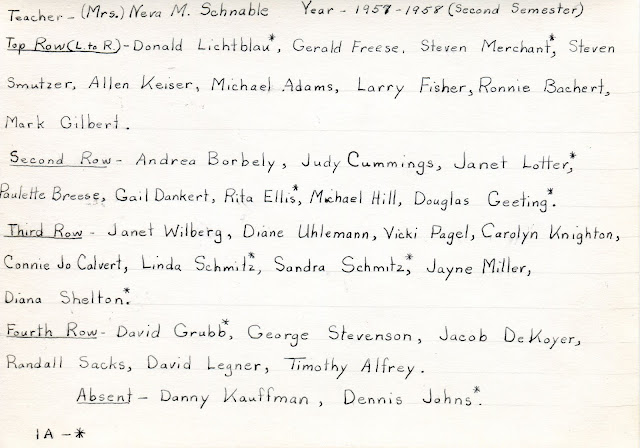 Teacher - (Mrs.) Neva M. Schnable Year - 1957-1958 (Second Semester)
Top Row (L. to R.) - Donald Lichtblau*, Gerald Freese, Steven Merchant*, Steven
Smutzer, Allen Keiser, Michael Adams, Larry Fisher, Ronnie Bachert,
Mark Gilbert.
Second Row - Andrea Borbely, Judy Cummings, Janet Lotter,*
Paulette Breese, Gail Dankert, Rita Ellis*, Michael Hill, Douglas Geeting*.
Third Row - Janet Wilberg, Diane Uhlemann, Vicki Pagel, Carolyn Knighton,
Connie Jo Calvert, Linda Schmitz*, Sandra Schmitz*, Jayne Miller,
Diana Shelton*.
Fourth Row - David Grubb*, George Stevenson, Jacob DeKoyer,
Randall Sacks, David Legner, Timothy Alfrey.
Absent - Danny Kauffman, Dennis Johns*.
1A - *